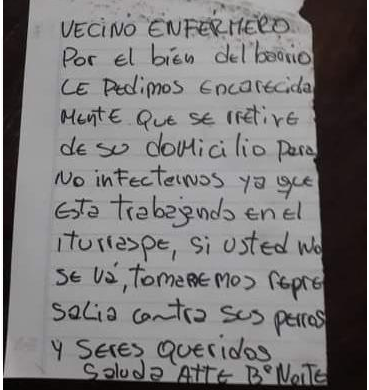 VECINO ENFERMERO
Por el bien del barrio
LE Pedimos Encarecida
Mente Que se rretire
de su domicilio para
No infectarnos ya que
Esta trabajando en el
iturraspe, si usted no
se va, tomaremos repre
salia contra sus perros
y seres queridos
Saluda ATTE B° Norte